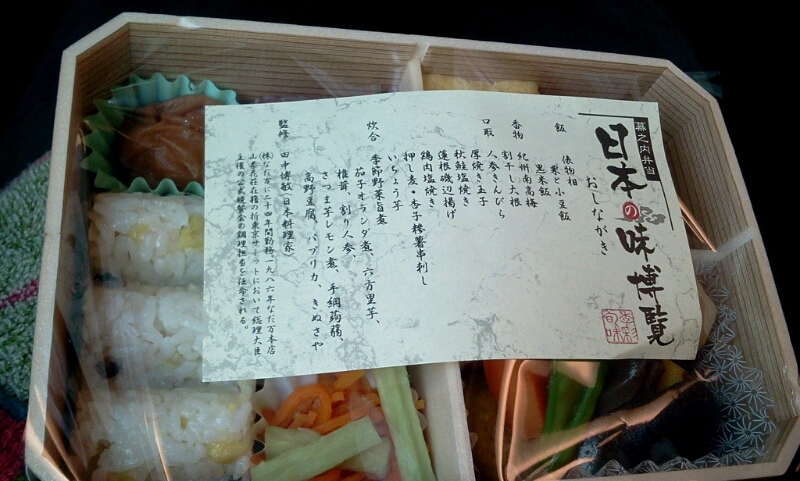 幕之内弁当
日本の味博覧
おしながき
吉彩旬味
飯 俵物相
栗と小豆飯
黒米飯
香物 紀州南高梅
割干し大根
口取 人参きんぴら
厚焼き玉子
秋鮭塩焼き
蓮根磯辺揚げ
鶏肉塩焼き
押し麦・杏子糝薯串刺し
いちょう芋
炊合 季節野菜旨煮
茄子オランダ煮、六方里芋、
椎茸、割り人参、手綱蒟蒻、
さつま芋レモン煮、
高野豆腐、パプリカ、きぬさや
監修 田中博敏(日本料理家)
(株)なだ万に二十四年間勤務、一九八六年なだ万本店
山茶花荘在籍の折東京サミットにおいて総理大臣
主催の公式晩餐会の調理担当を任命される。